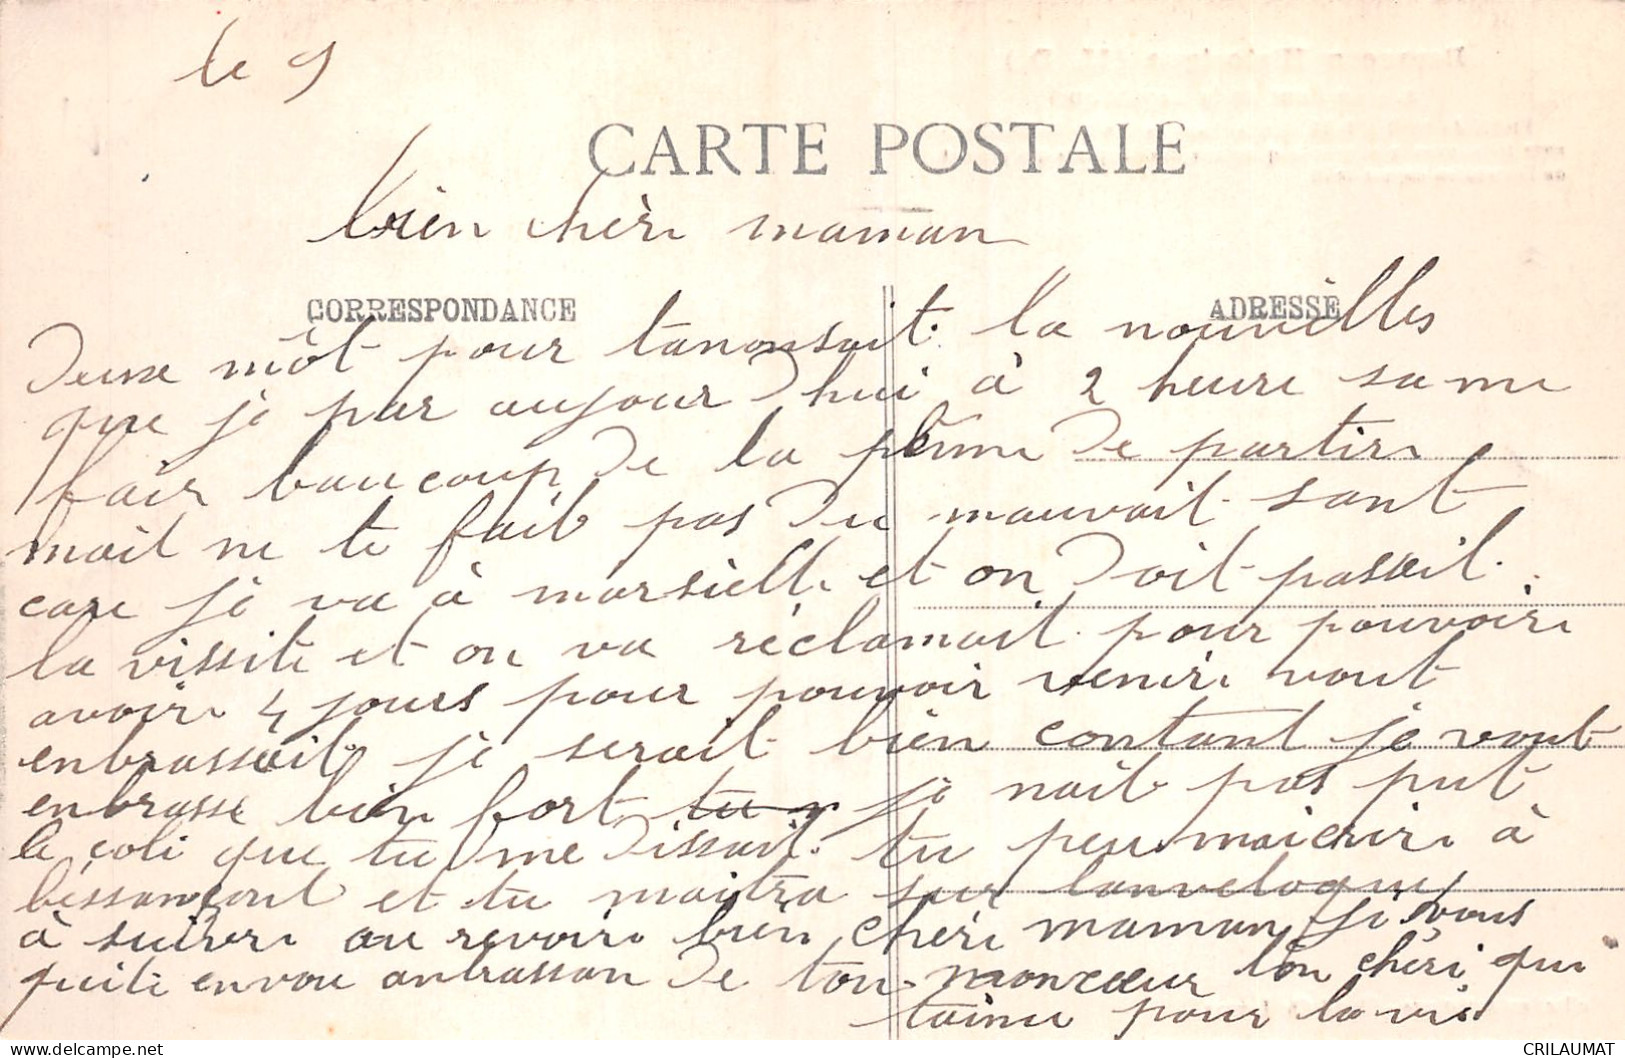 le 9
CARTE POSTALE
bien chèri maman
CORRESPONDANCE
ADRESSE
Deux môt pour tanonsait la nouvèlles
que je par aujour Dhui à 2 heure sa me
fair baucoup De la pème De partire
mait ne te fait pas Du mauvait sant
care je va à marsielle et on Doit passait
la vissite et on va réclamait pour pouvoire
avoire 4 jours pour pouvoir venire vout
enbrassait je serait bien contant je vout
enbrasse bien fort tu je nait pas put
le coli que tu me Dissait tu peu maicrire à
béssançont et tu maitra sur lanveloque
à suivre au revoire bien chéri maman je vous
quite envou anbrassan De ton moncoeur ton chéri qui
taime pour la vie
CRILAUMAT